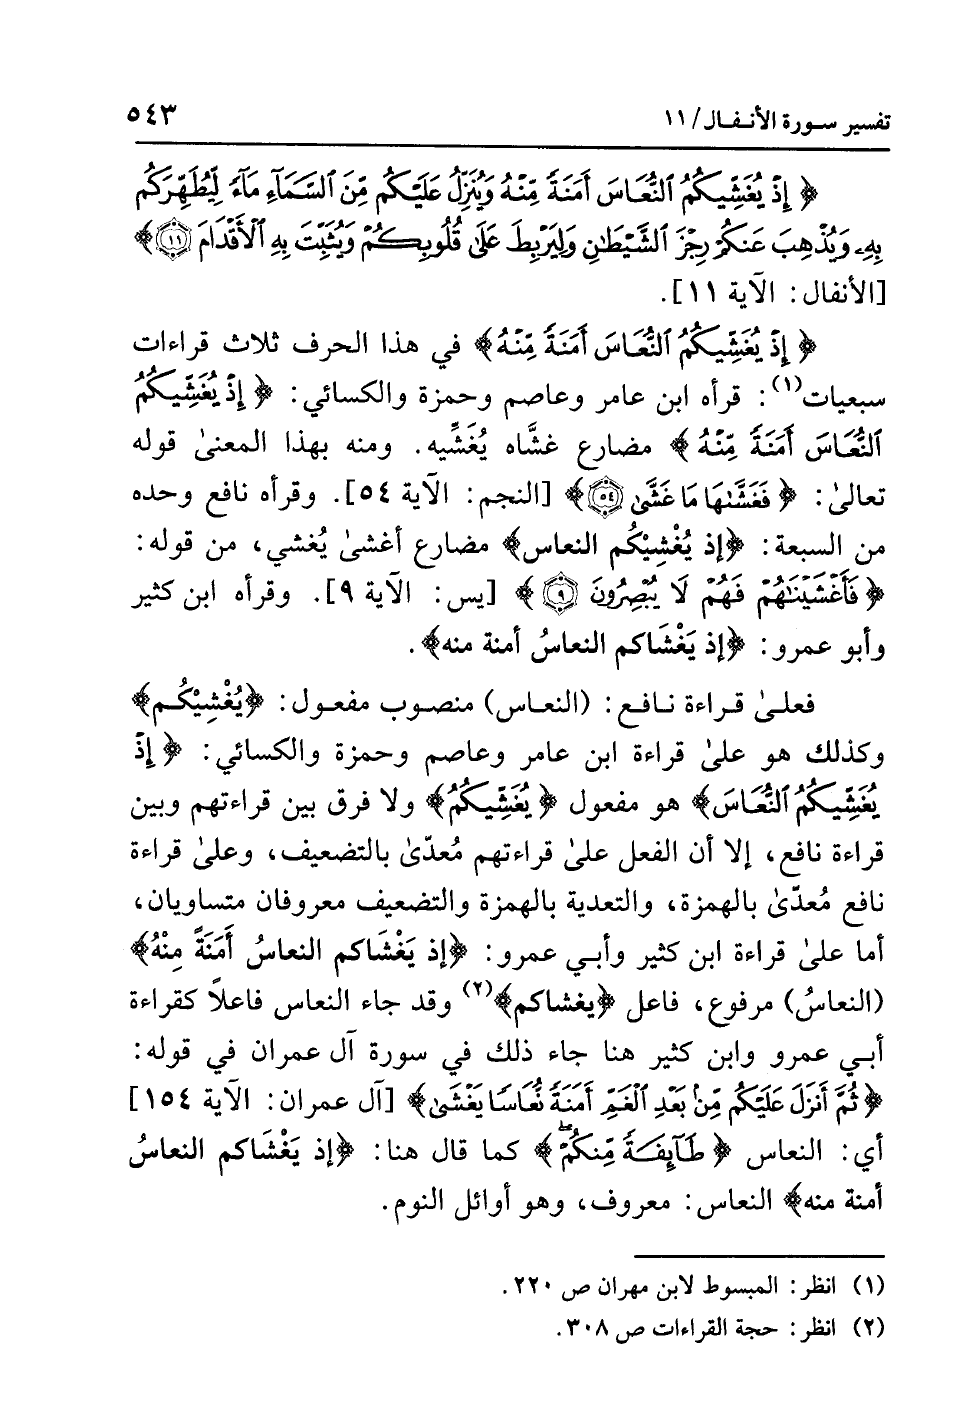 تفسير سورة الأنفال/ ١١
٥٤٣
﴿ إِذْ يُغَشِّيكُمُ ٱلنُّعَاسَ أَمَنَةً مِّنْهُ وَيُنَزِّلُ عَلَيْكُم مِّنَ ٱلسَّمَآءِ مَآءً لِّيُطَهِّرَكُم
بِهِۦ وَيُذْهِبَ عَنكُمْ رِجْزَ ٱلشَّيْطَـٰنِ وَلِيَرْبِطَ عَلَىٰ قُلُوبِكُمْ وَيُثَبِّتَ بِهِ ٱلْأَقْدَامَ ١١ ﴾
[الأنفال: الآية ١١].
﴿ إِذْ يُغَشِّيكُمُ ٱلنُّعَاسَ أَمَنَةً مِّنْهُ ﴾ في هذا الحرف ثلاث قراءات
سبعيات(١): قرأه ابن عامر وعاصم وحمزة والكسائي: ﴿ إِذْ يُغَشِّيكُمُ
ٱلنُّعَاسَ أَمَنَةً مِّنْهُ ﴾ مضارع غشَّاه يُغَشِّيه. ومنه بهذا المعنىٰ قوله
تعالىٰ: ﴿ فَغَشَّىٰهَا مَا غَشَّىٰ ٥٤ ﴾ [النجم: الآية ٥٤]. وقرأه نافع وحده
من السبعة: ﴿إذ يُغْشِيْكُم النعاس﴾ مضارع أغشىٰ يُغشي، من قوله:
﴿ فَأَغْشَيْنَـٰهُمْ فَهُمْ لَا يُبْصِرُونَ ٩ ﴾ [يس: الآية ٩]. وقرأه ابن كثير
وأبو عمرو: ﴿إذ يَغْشَاكم النعاسُ أمنة منه﴾.
فعلىٰ قراءة نافع: (النعاس) منصوب مفعول: ﴿يُغْشِيْكُم﴾
وكذلك هو علىٰ قراءة ابن عامر وعاصم وحمزة والكسائي: ﴿ إِذْ
يُغَشِّيكُمُ ٱلنُّعَاسَ﴾ هو مفعول ﴿ يُغَشِّيكُمُ﴾ ولا فرق بين قراءتهم وبين
قراءة نافع، إلا أن الفعل علىٰ قراءتهم مُعدّىٰ بالتضعيف، وعلىٰ قراءة
نافع مُعدّىٰ بالهمزة، والتعدية بالهمزة والتضعيف معروفان متساويان،
أما علىٰ قراءة ابن كثير وأبي عمرو: ﴿إذ يَغْشَاكم النعاسُ أَمَنَةً مِنْهُ﴾
(النعاسُ) مرفوع، فاعل ﴿يغشاكم﴾(٢) وقد جاء النعاس فاعلاً كقراءة
أبي عمرو وابن كثير هنا جاء ذلك في سورة آل عمران في قوله:
﴿ ثُمَّ أَنزَلَ عَلَيْكُم مِّنۢ بَعْدِ ٱلْغَمِّ أَمَنَةً نُّعَاسًا يَغْشَىٰ ﴾ [آل عمران: الآية ١٥٤]
أي: النعاس ﴿ طَآئِفَةً مِّنكُمْۖ ﴾ كما قال هنا: ﴿إذ يَغْشَاكم النعاسُ
أمنة منه﴾ النعاس: معروف، وهو أوائل النوم.
(١) انظر: المبسوط لابن مهران ص ٢٢٠.
(٢) انظر: حجة القراءات ص ٣٠٨.